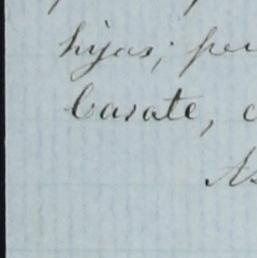 hijas; per
Carate, c
As